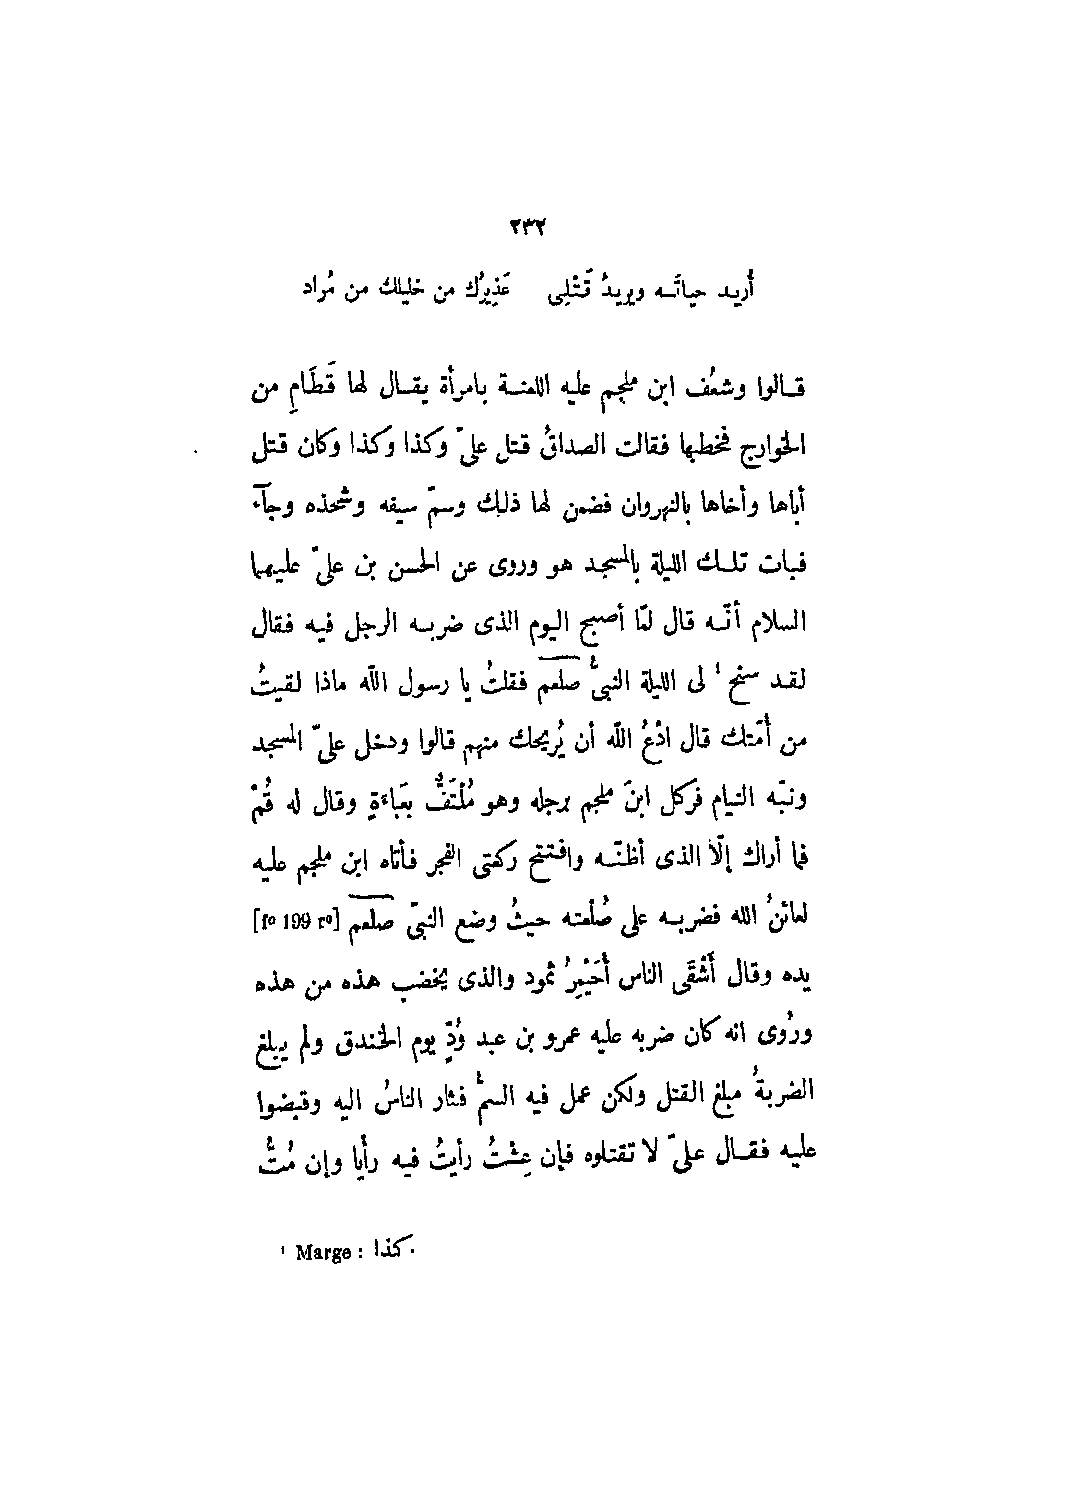 ٢٣٢
أُريد حياتَه ويريدُ قَتْلِى عَذِيرُك من خليلك من مُراد
قالوا وشعُف ابن ملجم عليه اللعنة بامرأة يقال لها قَطَامِ من
الخوارج فخطبها فقالت الصداقُ قتل علىّ وكذا وكذا وكان قتل
أباها وأخاها بالنهروان فضمن لها ذلك وسمّ سيفه وشحذه وجآء
فبات تلك الليلة بالمسجد هو وروى عن الحسن بن علىّ عليهما
السلام أنّه قال لمّا أصبح اليوم الذى ضربه الرجل فيه فقال
لقد سنح ¹ لى الليلة النبىُّ صلعم فقلتُ يا رسول الله ماذا لقيتُ
من أُمّتك قال ادْعُ اللّه أن يُريحك منهم قالوا ودخل علىّ المسجد
ونبّه النيام فركل ابنَ ملجم برجله وهو مُلْتَفٌّ بعَباءَةٍ وقال له قُمْ
فما أراك إلّا الذى أظنّه وافتتح ركعتى الفجر فأتاه ابن ملجم عليه
لعائنُ الله فضربه على صُلعته حيثُ وضع النبىّ صلعم [fº 199 rº]
يده وقال أَشْقَى الناس أُحَيْمِرُ ثمود والذى يخضب هذه من هذه
ورُوى انه كان ضربه عليه عمرو بن عبد وُدٍّ يوم الخندق ولم يبلغ
الضربةُ مبلغ القتل ولكن عمل فيه السمُّ فثار الناسُ اليه وقبضوا
عليه فقال علىّ لا تقتلوه فإن عِشْتُ رأيتُ فيه رأيا وإن مُتُّ
¹ Marge : كذا.